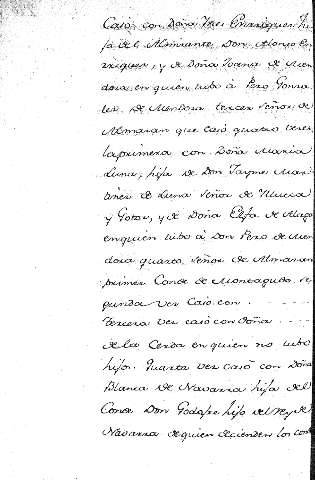 Casó con Doña Ines Enrriquez hi
ja de el Almirante, Don Alonso En
rriquez, y de Doña Juana de Men
doza en quien tubo â Pero Gonza
lez de Mendoza tercer Señor de
Almazan que casó quatro veces
la primera con Doña Maria
Luna, hija de Don Jayme Mar
tinez de Luna Señor de Illueca
y Gotor, y de Doña Elfa de
en quien tubo â Don Pero de Men
doza quarto, Señor de Almazan
primer Conde de Monteagudo se
gunda vez Casó con - - - - -
tercera vez casó con Doña - - -
de la Cerda en quien no tubo
hijos. Quarta vez casó con Doña
Blanca de Navarra hija del
Conde Don Godofre hijo del Rey de
Navarra de quien decienden los con